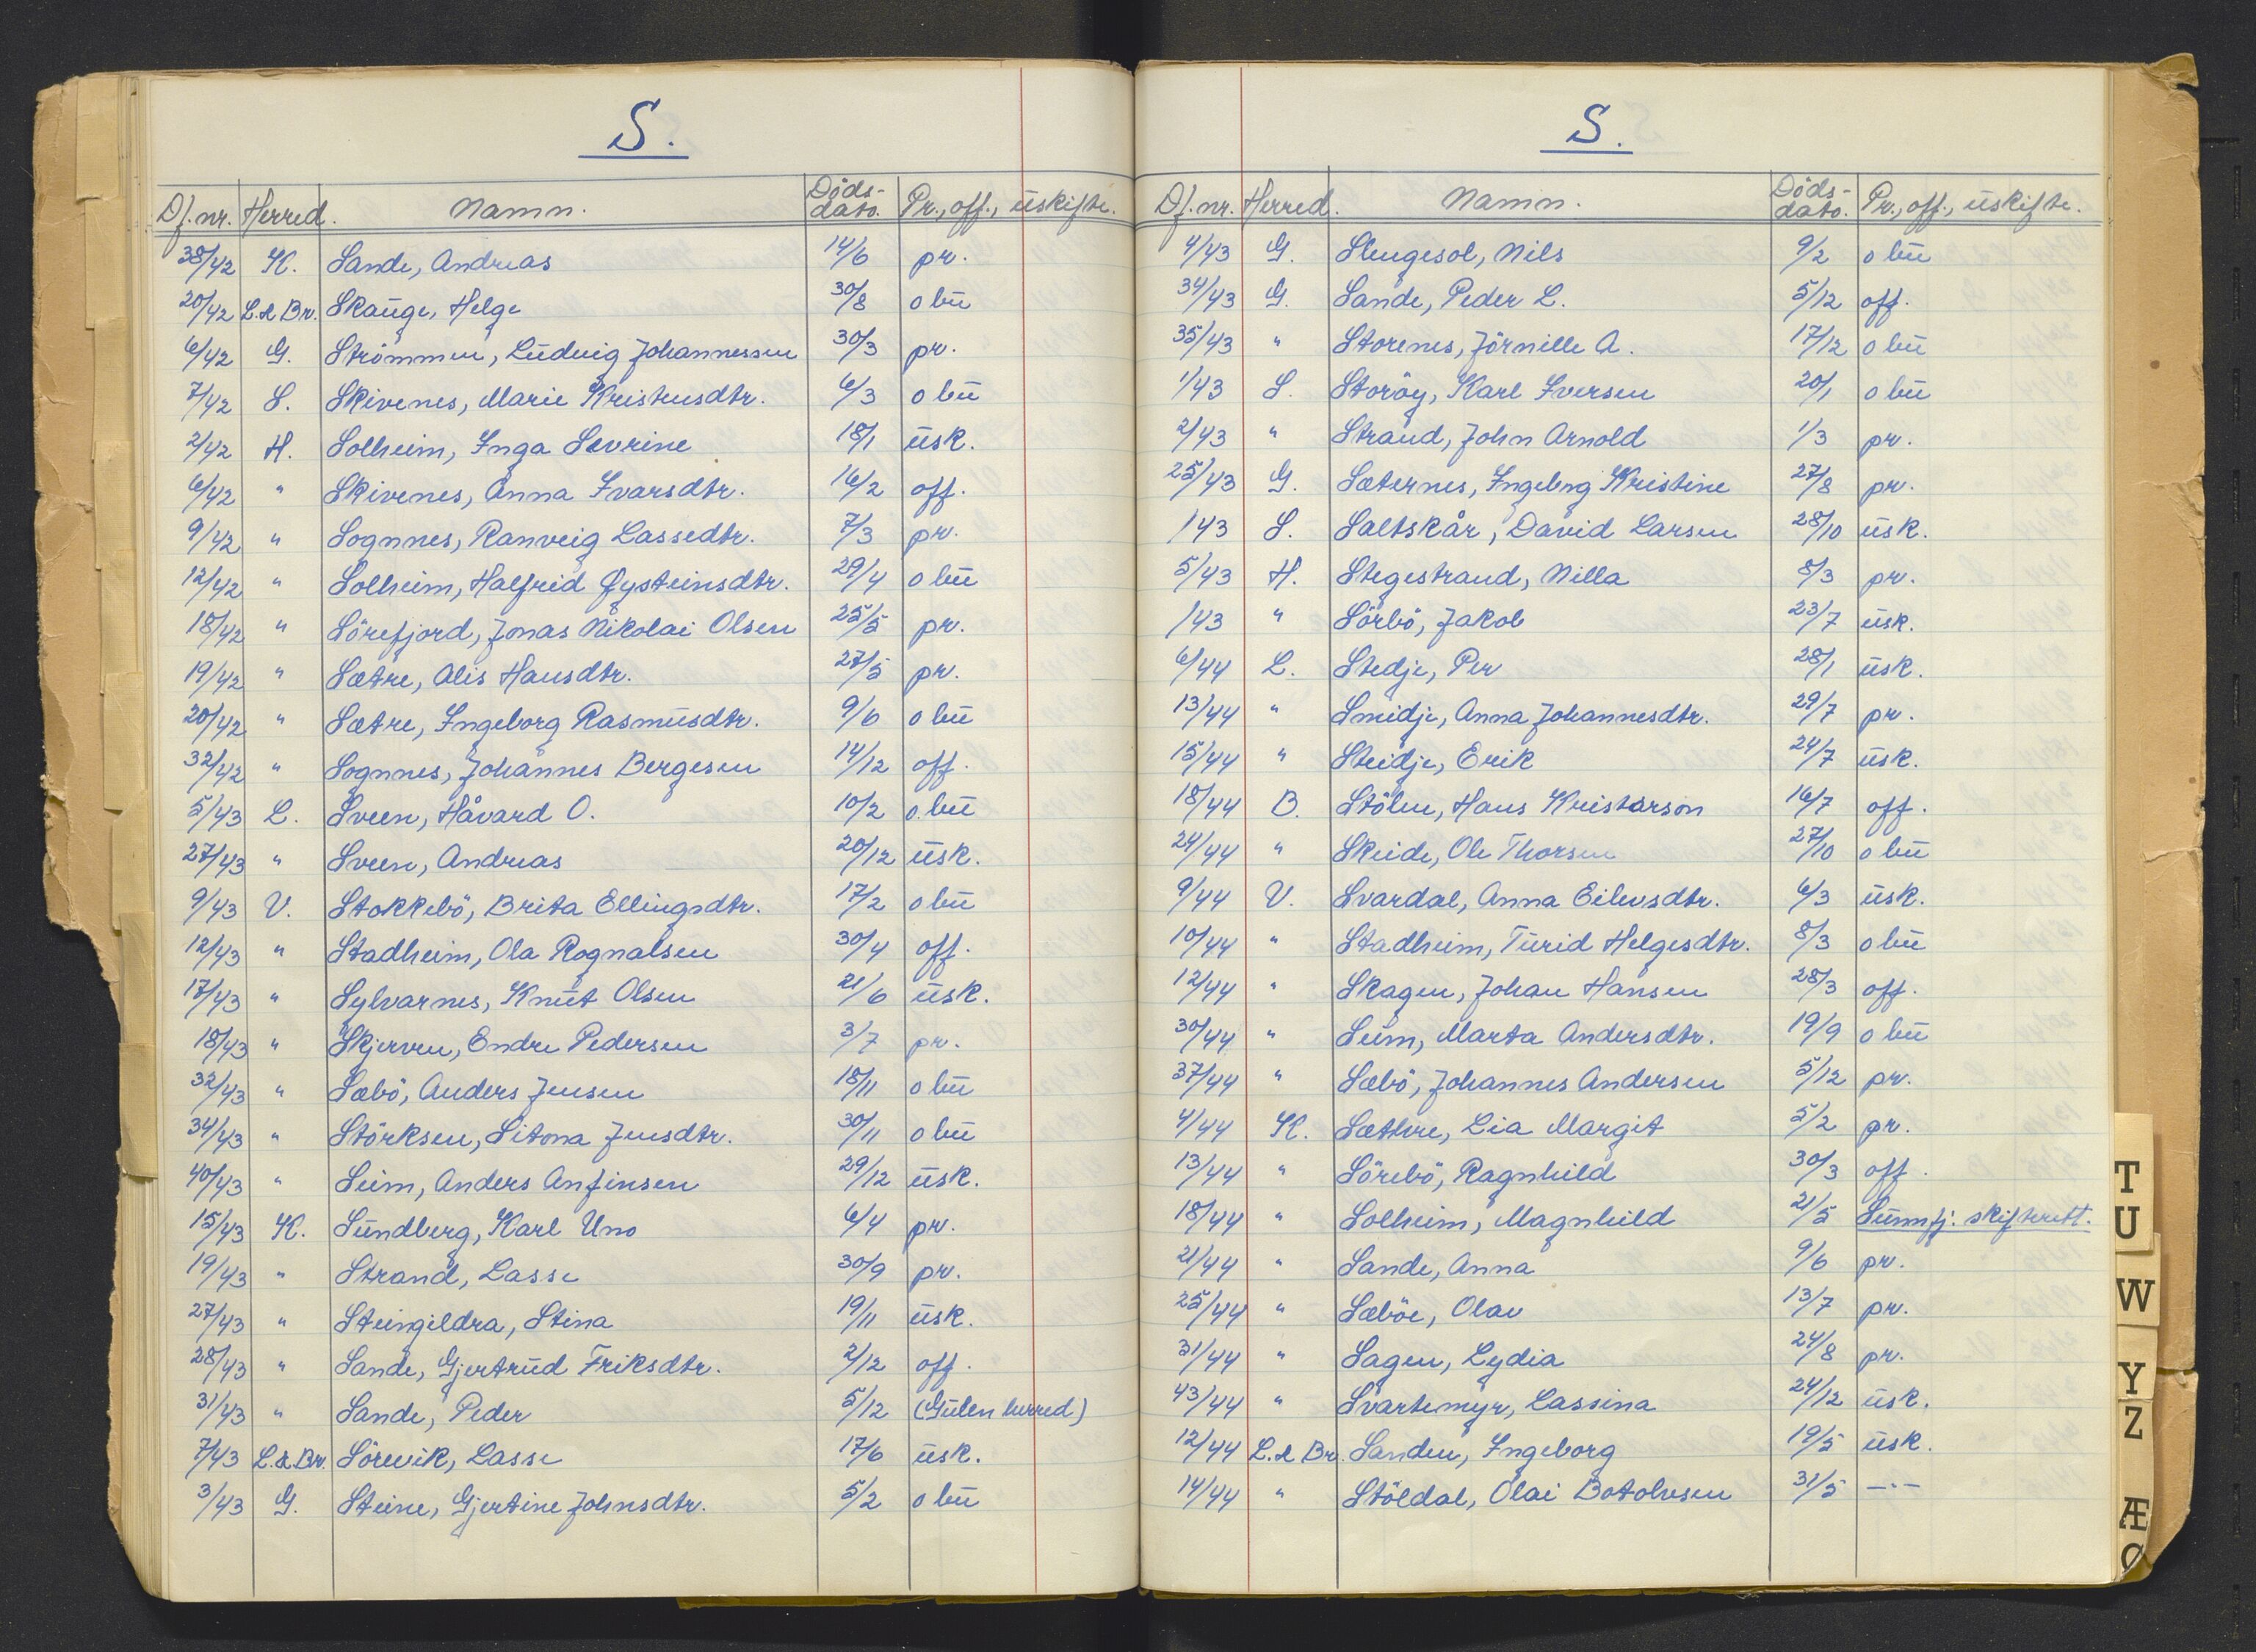 S.
Df.nr. Herred. Namn. Döds-dato. Pr., off., uskifte.
38/42 K. Sande, Andreas 14/6 pr.
20/42 L.& Br. Skauge, Helge 30/8 o bu
6/42 G. Strömmen, Ludvig Johannessen 30/3 pr.
7/42 S. Skivenes, Marie Kristensdtr. 6/3 o bu
2/42 H. Solheim, Inga Sevrine 18/1 usk.
6/42 " Skivenes, Anna Ivarsdtr. 16/2 off.
9/42 " Sognnes, Ranveig Lassedtr. 7/3 pr.
12/42 " Solheim, Halfrid Øysteinsdtr. 29/4 o bu
18/42 " Sörefjord, Jonas Nikolai Olsen 25/5 pr.
19/42 " Sætre, Alis Hansdtr. 27/5 pr.
20/42 " Sætre, Ingeborg Rasmusdtr. 9/6 o bu
32/42 " Sognnes, Johannes Bergesen 14/12 off.
5/43 L. Sveen, Håvard O. 10/2 o. bu
27/43 " Sveen, Andreas 20/12 usk.
9/43 V. Stokkebö, Brita Ellingsdtr. 17/2 o bu
12/43 " Stadheim, Ola Rognalsen 30/4 off.
17/43 " Sylvarnes, Knut Olsen 21/6 usk.
18/43 " Skjerven, Endre Pedersen 3/7 pr.
32/43 " Sæbö, Anders Jensen 18/11 o bu
34/43 " Störksen, Sitona Jensdtr. 30/11 o bu
40/43 " Suim, Anders Anfinsen 29/12 usk.
15/43 K. Sundberg, Karl Uno 6/4 pr.
19/43 " Strand, Lasse 30/9 pr.
27/43 " Steingildra, Stina 19/11 usk.
28/43 " Sande, Gjertrud Friksdtr. 2/12 off.
31/43 " Sande, Peder 5/12 (Gulen herred)
7/43 L.&.Br. Sörevik, Lasse 17/6 usk.
3/43 G. Steine, Gjertine Johnsdtr. 5/2 o bu
S.
Df.nr. Herred. Namn. Döds-dato. Pr., off., uskifte.
4/43 G. Slengesol, Nils 9/2 o bu
34/43 G. Sande, Peder L. 5/12 off.
35/43 " Storenes, Jörnille A. 17/12 o bu
1/43 S. Storöy, Karl Iversen 20/1 o bu
2/43 " Strand, John Arnold 1/3 pr.
25/43 G. Sæternes, Ingebrg Kristine 27/8 pr.
/43 S. Saltskår, David Larsen 28/10 usk.
5/43 H. Stegestrand, Nilla 8/3 pr.
/43 " Sörbö, Jakob 23/7 usk.
6/44 L. Stedje, Per 28/1 usk.
13/44 " Smidje, Anna Johannesdtr. 29/7 pr.
15/44 " Steidje, Erik 24/7 usk.
18/44 B. Stölen, Hans Kristarson 16/7 off.
24/44 " Skeide, Ole Thorsen 27/10 o bu
9/44 V. Svardal, Anna Eilevsdtr. 6/3 usk.
10/44 " Stadheim, Turid Helgesdtr. 8/3 o bu
12/44 " Skagen, Johan Hansen 28/3 off.
30/44 " Suim, Marta Andersdtr. 19/9 o bu
37/44 " Sæbö, Johannes Andersen 5/12 pr.
4/44 K. Sæthre, Lia Margit 5/2 pr.
13/44 " Sörebö, Ragnhild 30/3 off.
18/44 " Solheim, Magnhild 21/5 Sunnfj. skifterett.
21/44 " Sande, Anna 9/6 pr.
25/44 " Sæböe, Olav 13/7 pr.
31/44 " Sagen, Lydia 24/8 pr.
43/44 " Svartemyr, Lassina 24/12 usk.
12/44 L.& Br. Sanden, Ingeborg 19/5 usk.
14/44 " Stöldal, Olai Botolvsen 31/5 -"-
T
U
W
Y
Z
Æ
Ø